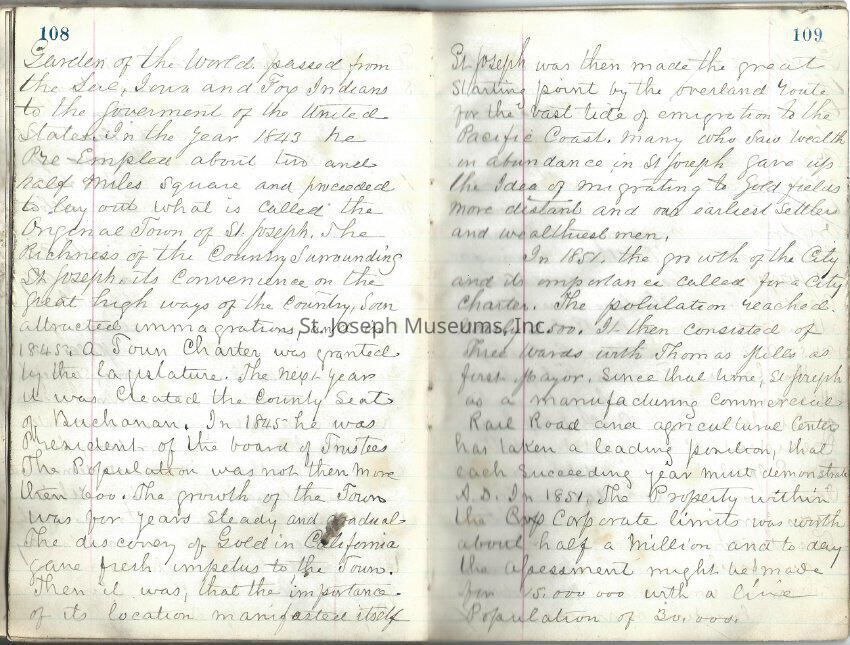 108
Garden of the World. passed from
the Sac, Iowa and Fox Indians
to the goverment of the United
States. In the year 1843 he
Pre-Empted about two and
half miles Square and proceeded
to lay out what is called the
Original Town of St Joseph. The
Richness of the Country Surrounding
St Joseph, its Convenience on the
great high ways of the Country, Soon
attracted immagrations, and in
1845. A Town Charter was granted
by the lagislature. The next year
it was Created the County Seat
of Buchanan. In 1845 he was
President of the board of Trustees
The Population was not then more
then 600. The growth of the Town
was for years Steady and gradual
The discovery of Gold in California
gave fresh impetus to the Town.
Then it was, that the importance
of its location manifested itself
109
St Joseph was then made the great
Starting point by the overland route
for the vast tide of emigration to the
Pacific Coast. Many who saw wealth
in abundance in St Joseph gave up
the Idea of migrating to Gold fields
more distant and our earliest Settlers
and wealthiest men.
In 1851, the growth of the City
and its importance called for a City
Charter. The polulation reached
500. It then consisted of
Three wards with Thomas Mills as
first Mayor. Since that time, St Joseph
as a manufacturing Commercial
Rail Road and agricultural Center
has taken a leading position, that
each Succeeding year must demonstrate
A.D. In 1851, The Property within
the Corporate limits was worth
about half a Million and to day
the assessment might be made
for 15.000 000 with a live
Population of 30.000.
St. Joseph Museums, Inc.